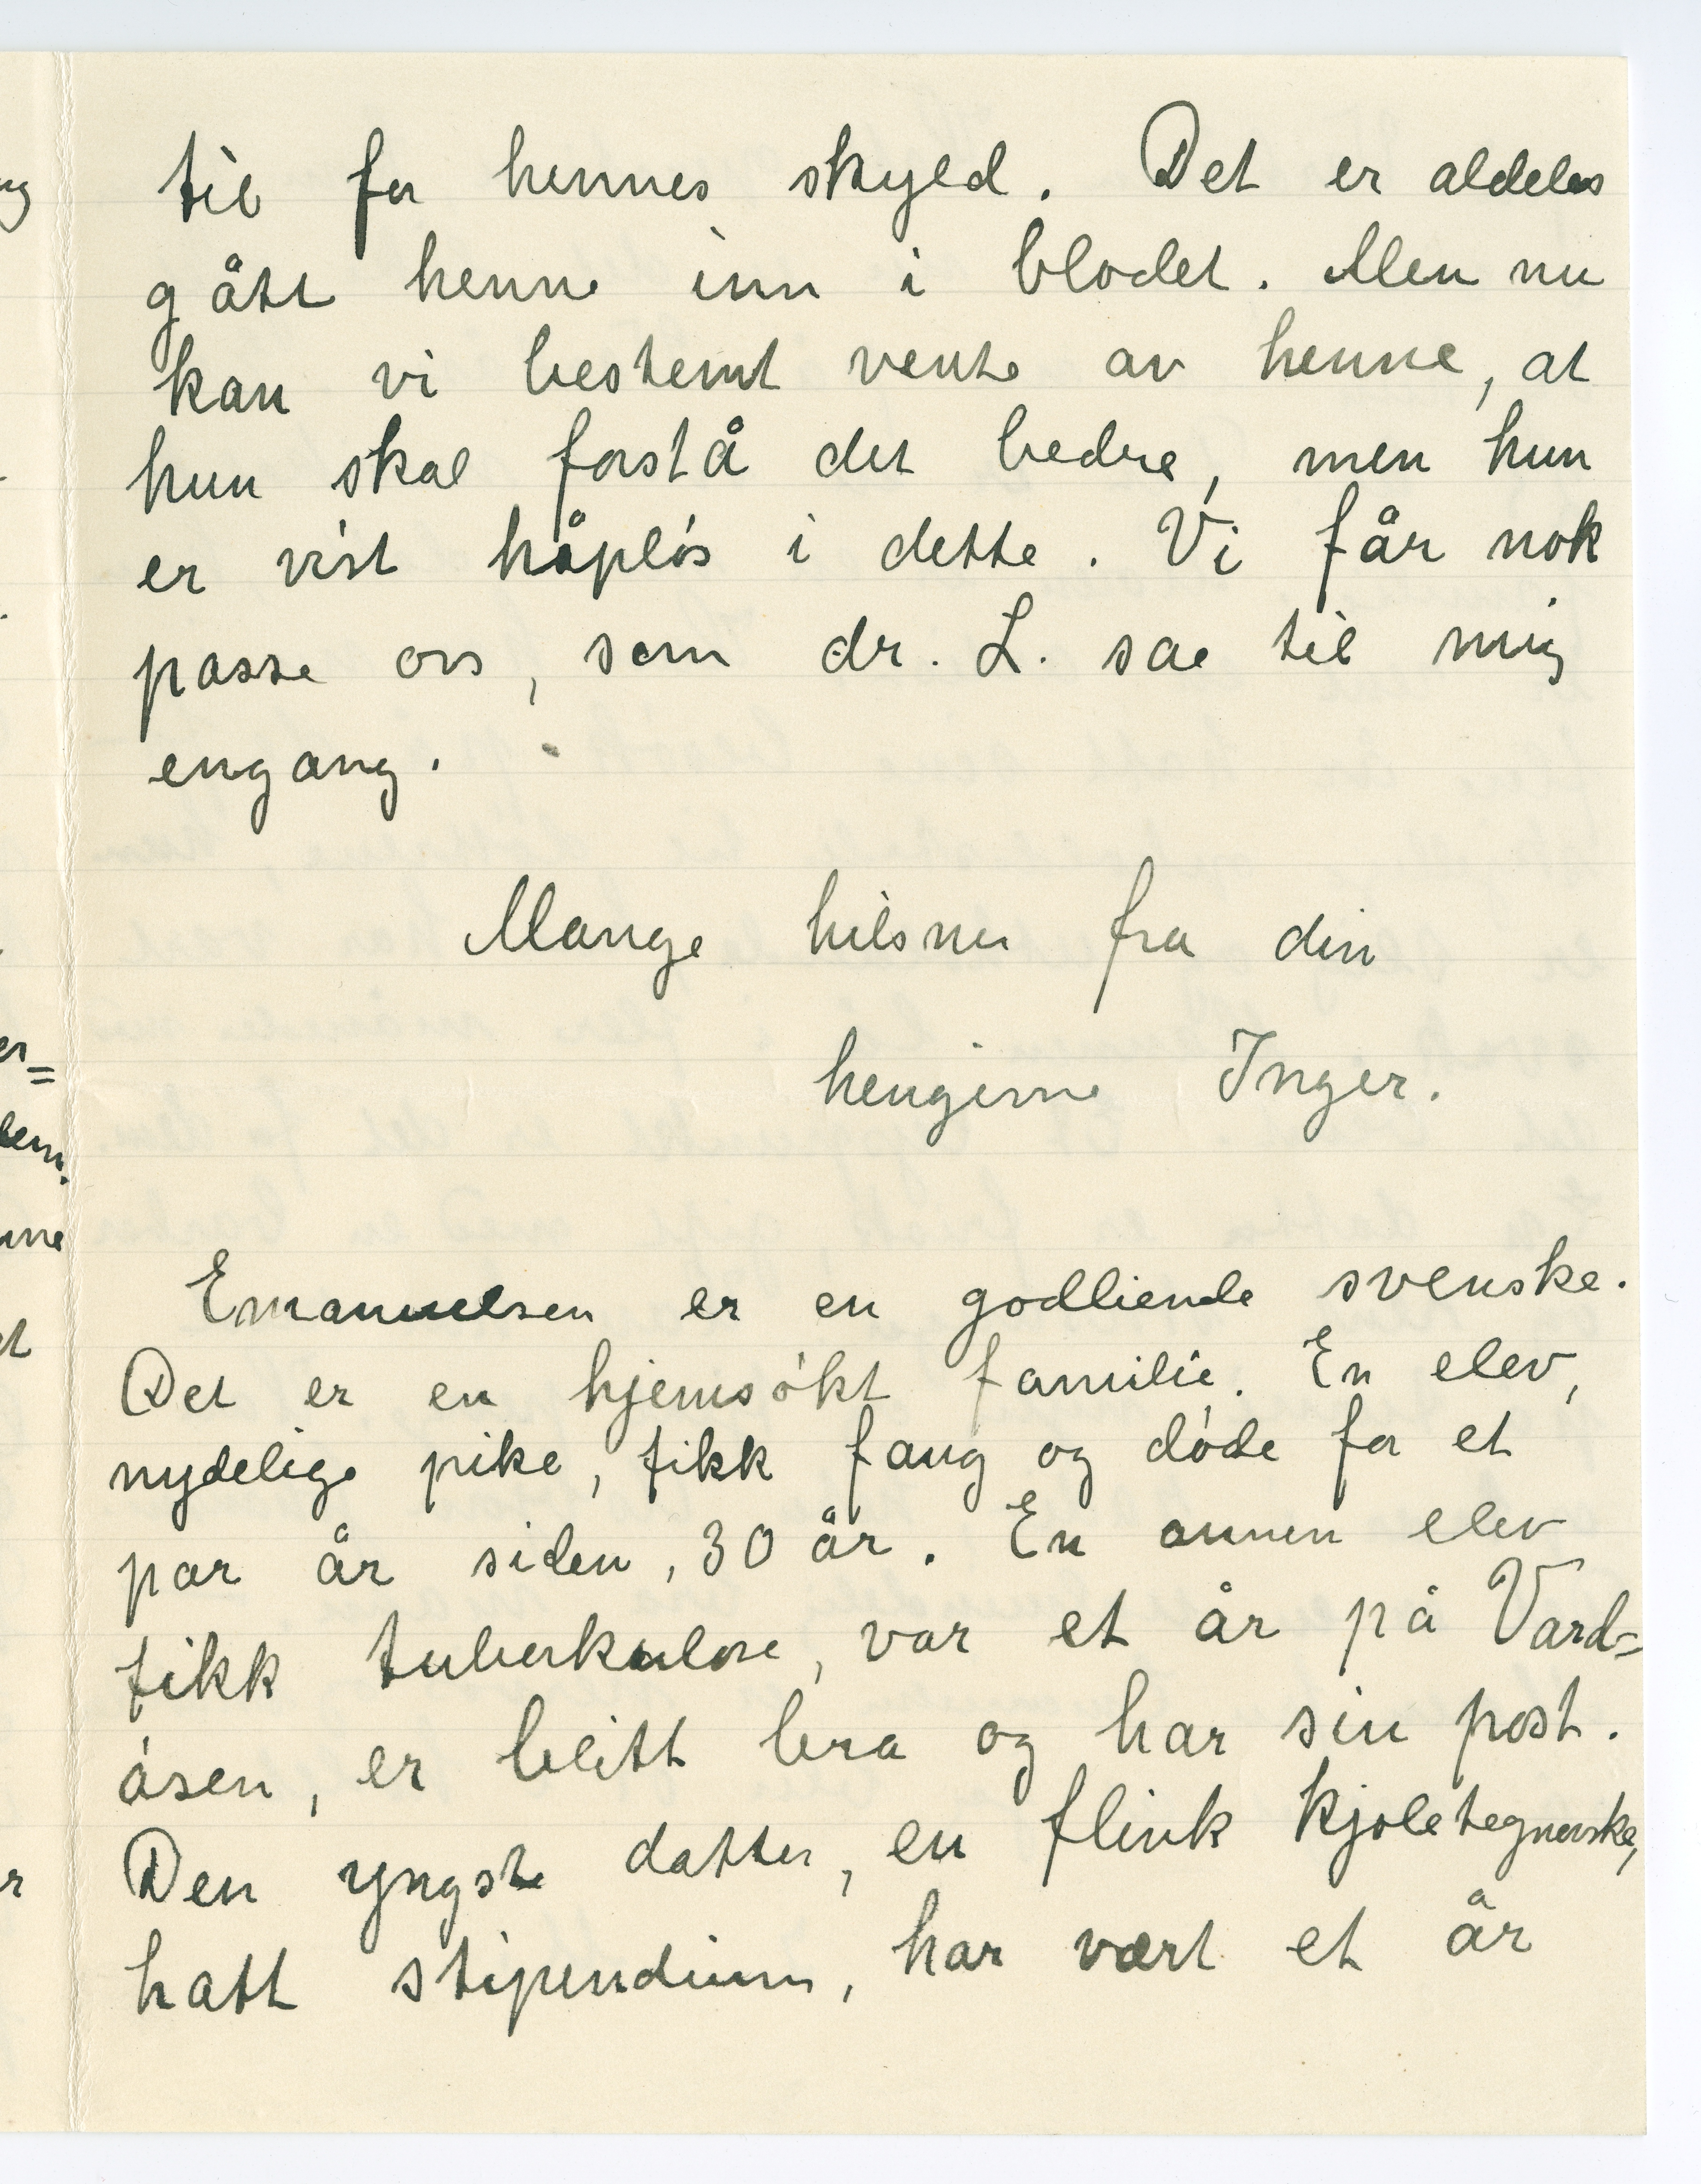 til for hennes skyld. Det er aldeles
gått henne inn i blodet. Men nu
kan vi bestemt vente av henne, at
hun skal forstå det bedre, men hun
er vist håpløs i dette. Vi får nok
passe oss, som dr. L. sae til mig
engang.
Mange hilsner fra din
hengivne Inger.
Emanuelsen er en godlidende svenske.
Det er en hjemsøkt familie. En elev,
nydelige pike, fikk fang og døde for et
par år siden, 30 år. En annen elev
fikk tuberkulose, var et år på Vard=
åsen, er blitt bra og har sin post.
Den yngste datter, en flink kjoletegnerske,
hatt stipendium, har vært et år